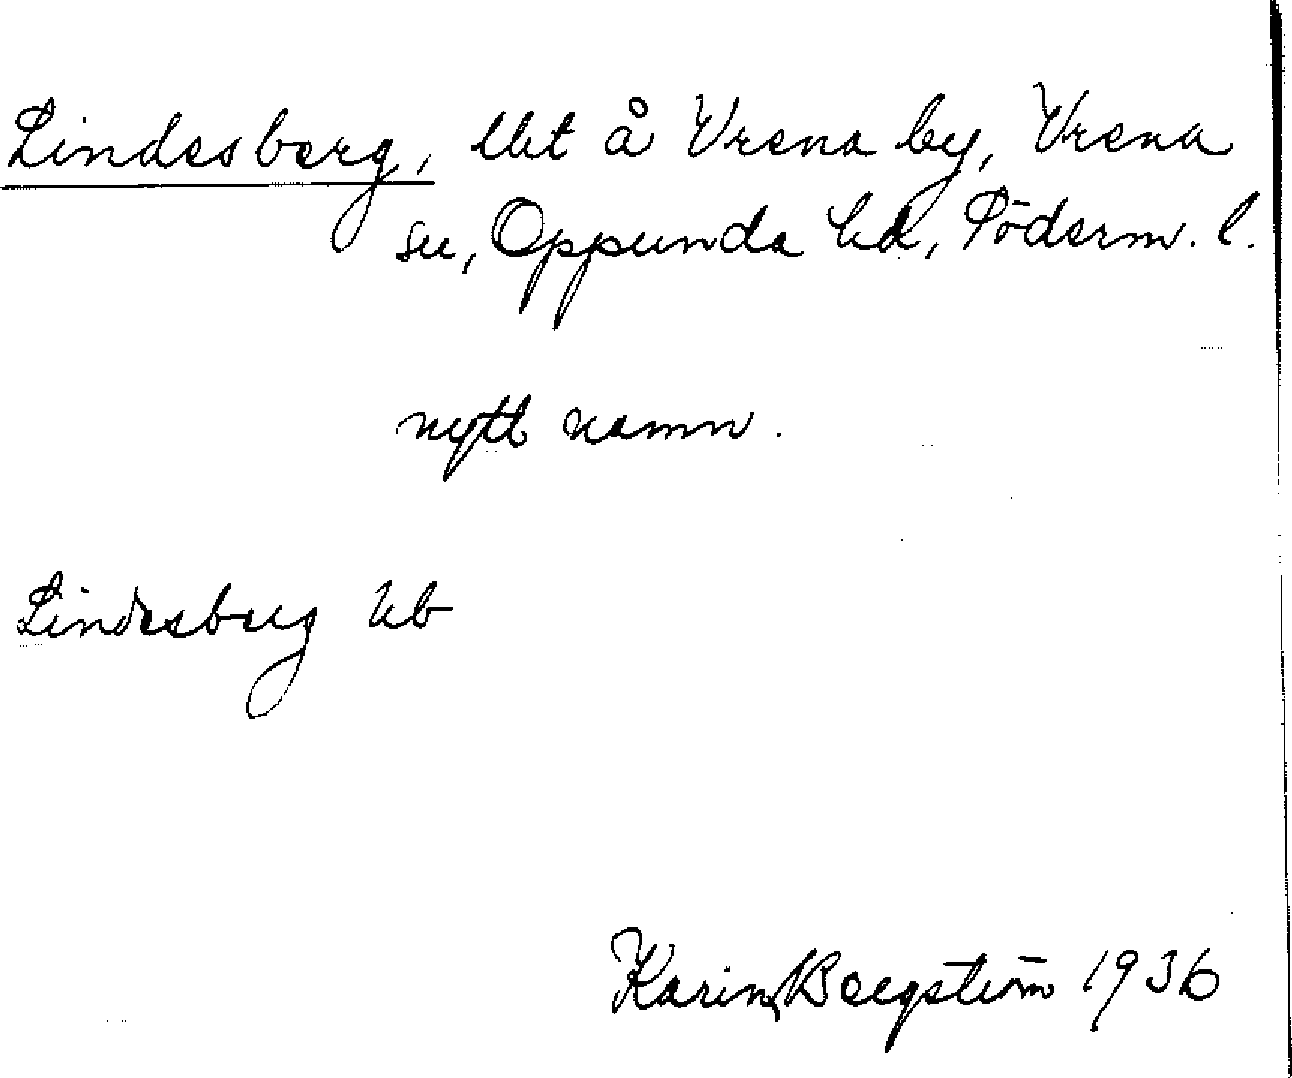 Lindesberg, lht å Vrena by, Vrena
sn, Oppunda hd, Söderm. l.
nytt namn.
Lindesberg Ub
Karin Bergström 1936